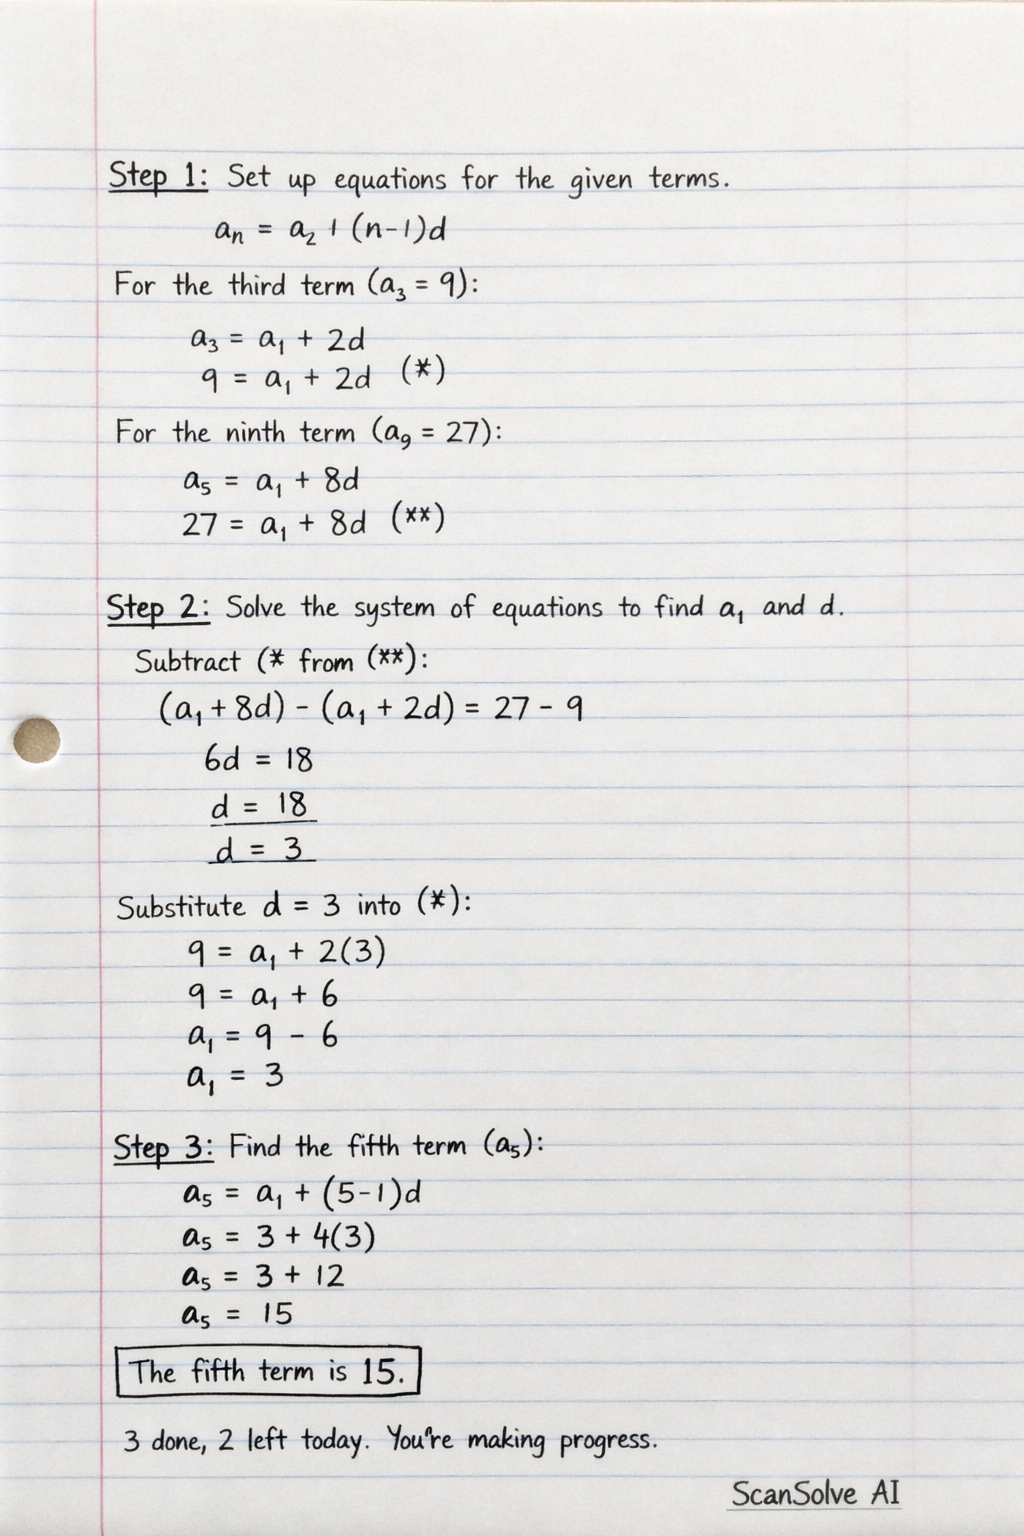 Step 1: Set up equations for the given terms.
aₙ = a₂ + (n-1)d
For the third term (a₃ = 9):
a₃ = a₁ + 2d
9 = a₁ + 2d (*)
For the ninth term (a₉ = 27):
a₅ = a₁ + 8d
27 = a₁ + 8d (**)
Step 2: Solve the system of equations to find a₁ and d.
Subtract (* from (**):
(a₁ + 8d) - (a₁ + 2d) = 27 - 9
6d = 18
d = 18
d = 3
Substitute d = 3 into (*):
9 = a₁ + 2(3)
9 = a₁ + 6
a₁ = 9 - 6
a₁ = 3
Step 3: Find the fifth term (a₅):
a₅ = a₁ + (5-1)d
a₅ = 3 + 4(3)
a₅ = 3 + 12
a₅ = 15
The fifth term is 15.
3 done, 2 left today. You're making progress.
ScanSolve AI